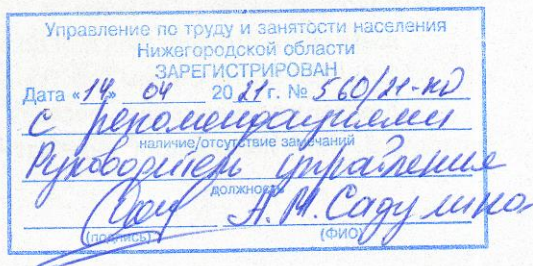 Управление по труду и занятости населения
Нижегородской области
ЗАРЕГИСТРИРОВАН
Дата «14» 04 2021г. № 560/21-КД
с рекомендациями
наличие/отсутствие замечаний
Руководитель управления
должность
А.М. Садулина
(подпись) (ФИО)